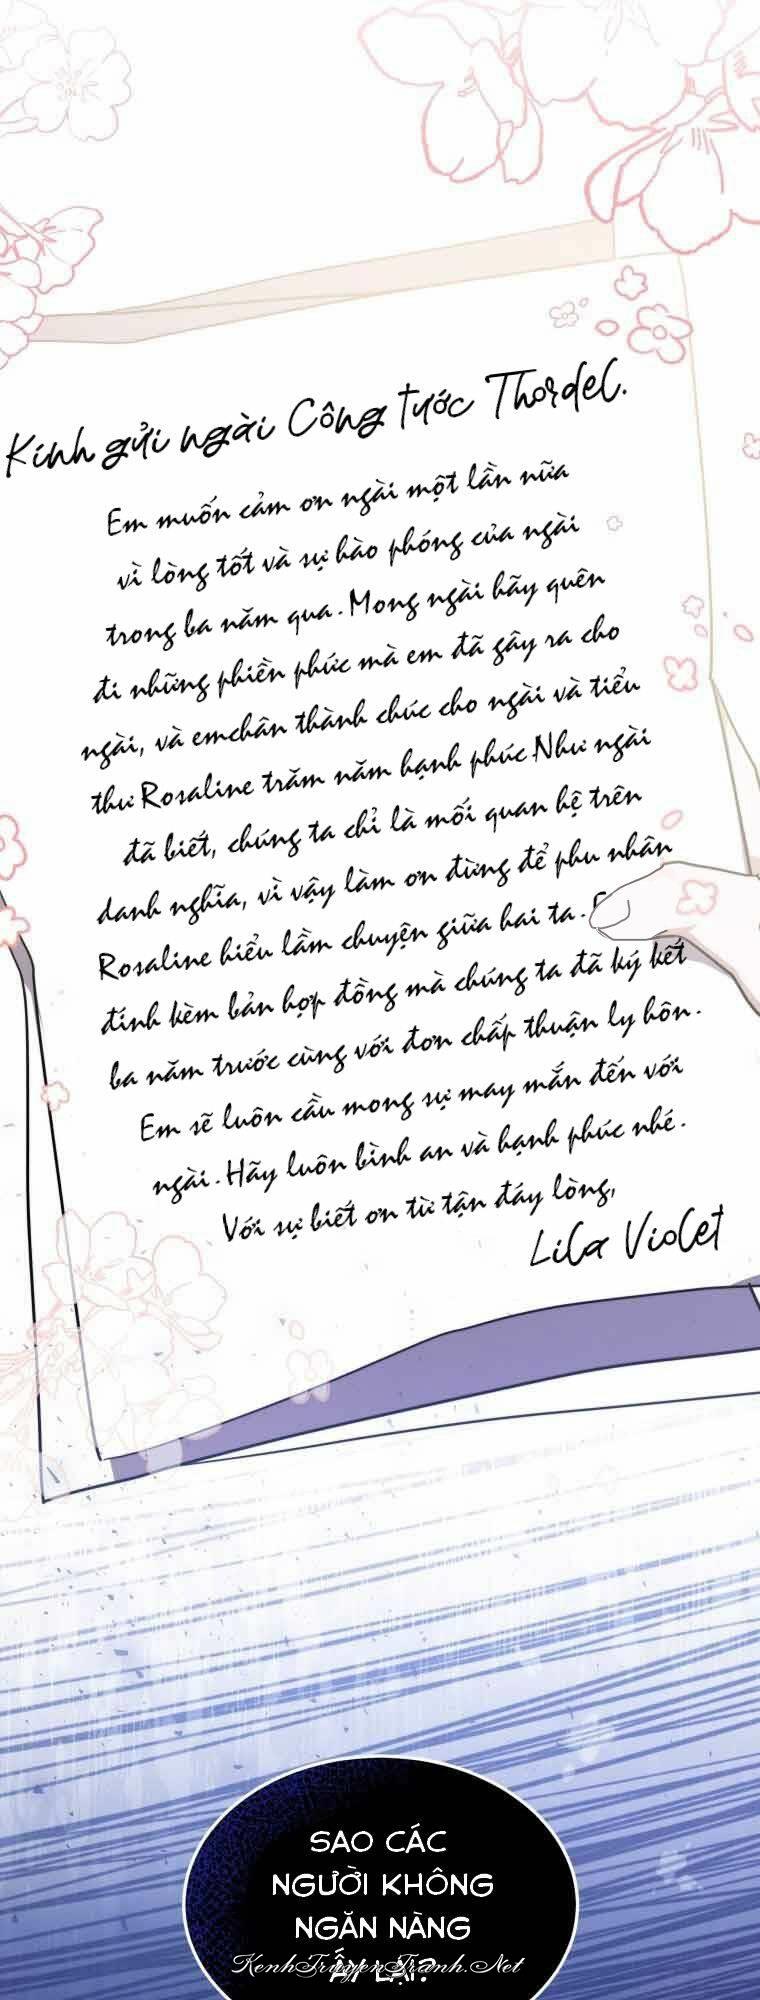 Kính gửi ngài Công tước Thordel.
Em muốn cảm ơn ngài một lần nữa
vì lòng tốt và sự hào phóng của ngài
trong ba năm qua. Mong ngài hãy quên
đi những phiền phức mà em đã gây ra cho
ngài, và emchân thành chúc cho ngài và tiểu
thư Rosaline trăm năm hạnh phúc. Như ngài
đã biết, chúng ta chỉ là mối quan hệ trên
danh nghĩa, vì vậy làm ơn đừng để phu nhân
Rosaline hiểu lầm chuyện giữa hai ta.
đính kèm bản hợp đồng mà chúng ta đã ký kết
ba năm trước cùng với đơn chấp thuận ly hôn.
Em sẽ luôn cầu mong sự may mắn đến với
ngài. Hãy luôn bình an và hạnh phúc nhé.
Với sự biết ơn từ tận đáy lòng,
Lila Violet
SAO CÁC
NGƯỜI KHÔNG
NGĂN NÀNG
ẤY LẠI?
KenhTruyenTranh.Net